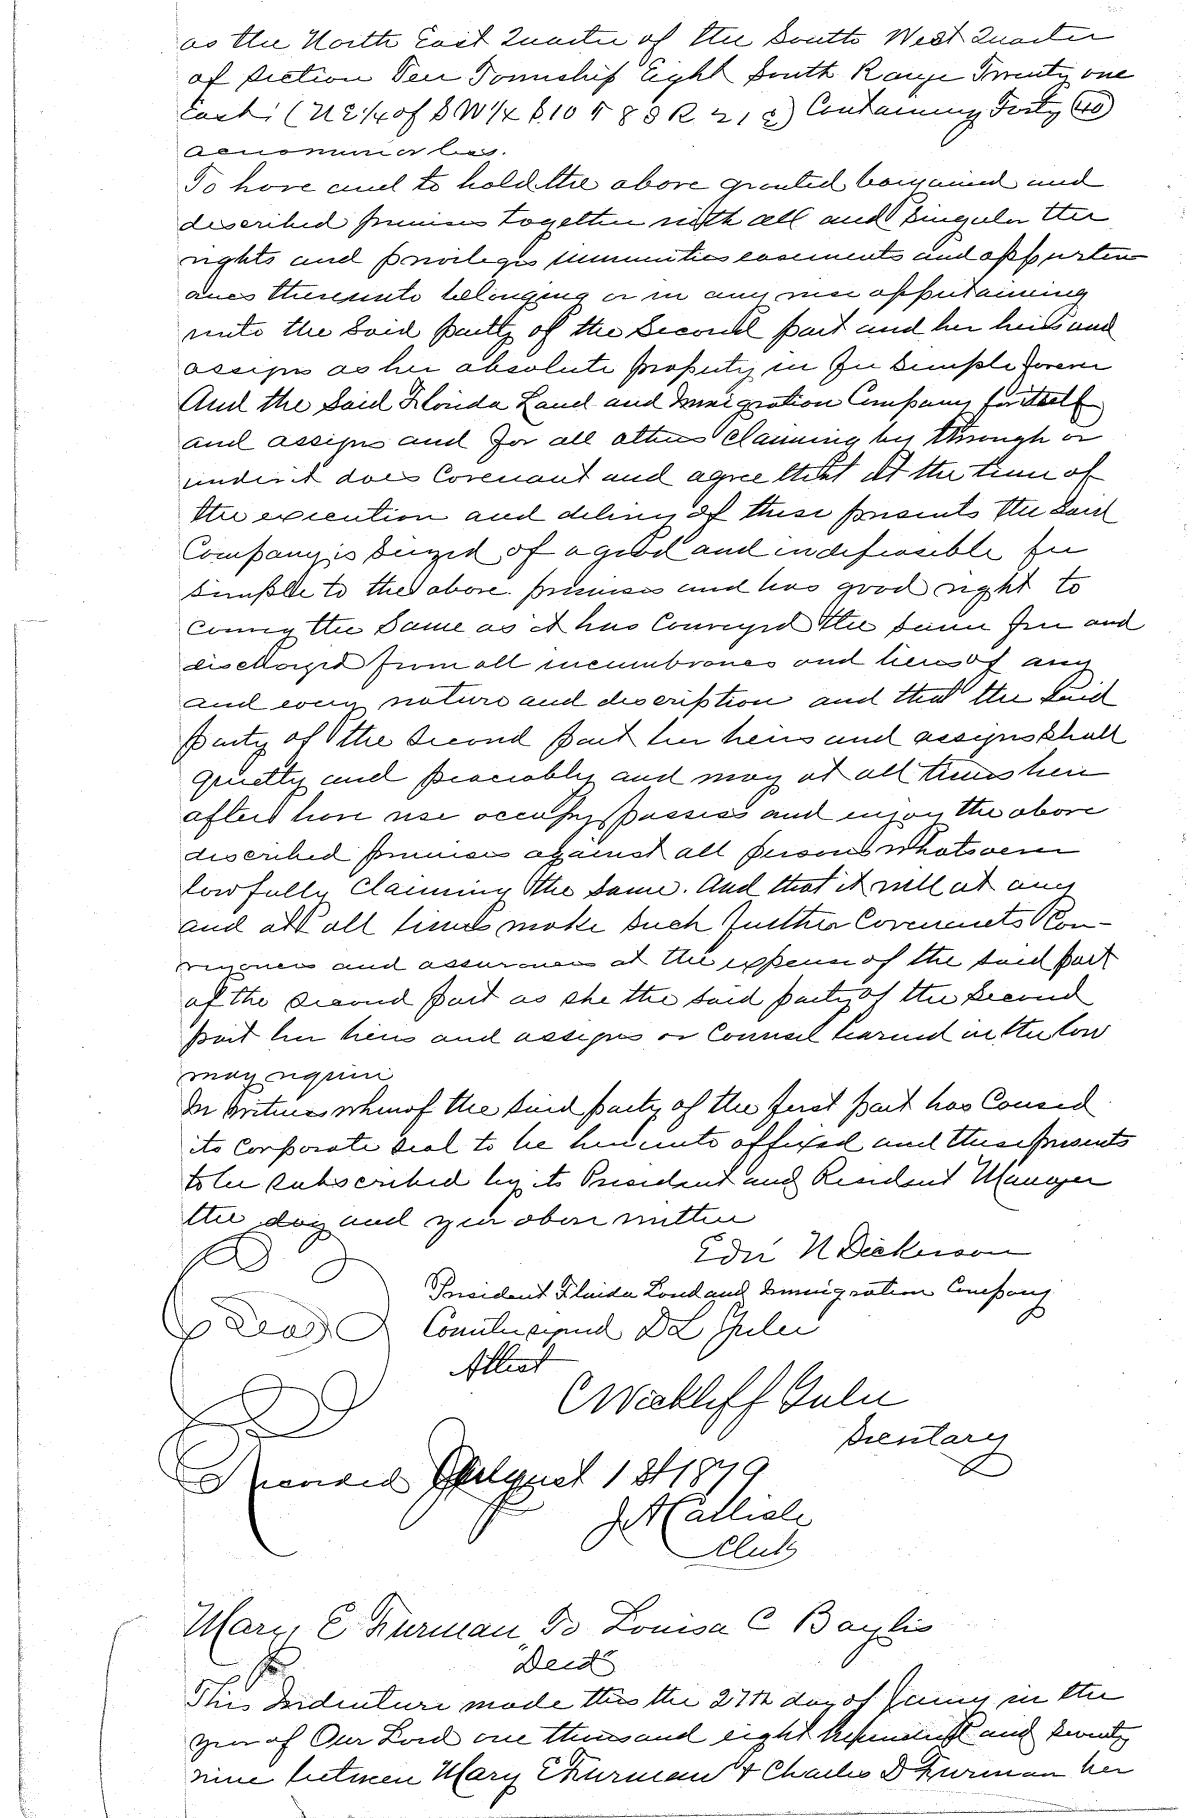 as the North East Quarter of the South West Quarter
of Section Ten Township Eight South Range Twenty one
East: (N E 1/4 of S W 1/4 S 10 T 8 S R 21 E) Containing Forty (40)
acres more or less.
To have and to hold the above granted bargained and
described premises together with all and singular the
rights and privileges immunities easements and appurten
ances thereunto belonging or in any wise appertaining
unto the Said party of the Second part and her heirs and
assigns as her absolute property in Fee Simple forever
And the Said Florida Land and Immigration Company for itself
and assigns and for all others Claiming by through or
under it does Covenant and agree that at the time of
the execution and delivery of these presents the Said
Company is Seized of a good and indefeasible fee
simple to the above premises and has good right to
convey the Same as it has Conveyed the same free and
discharged from all incumbrances and liens of any
and every nature and description and that the Said
party of the Second part her heirs and assigns Shall
quietly and peaceably and may at all times here
after have use occupy possess and enjoy the above
described premises against all persons whatsoever
lawfully Claiming the Same. And that it will at any
and at all times make such further Covenants Con-
veyances and assurances at the expense of the said part
of the second part as she the said party of the Second
part her heirs and assigns or Counsel learned in the law
may require
In Witness whereof the Said party of the first part has Caused
its Corporate Seal to be hereunto affixed and these presents
to be Subscribed by its President and Resident Manager
the day and year above written
Edw N Dickerson
President Florida Land and Immigration Company
Seal Countersigned D L Yulee
Attest
C Wickliff Yulee
Secretary
Recorded August 1st 1879
J A Carlisle
Clerk
Mary E Furman To Louisa C Baylis
"Deed"
This Indenture made this the 27th day of in the
year of Our Lord one thousand eight hundred and Seventy
nine between Mary E Furman & Charles D Furman her